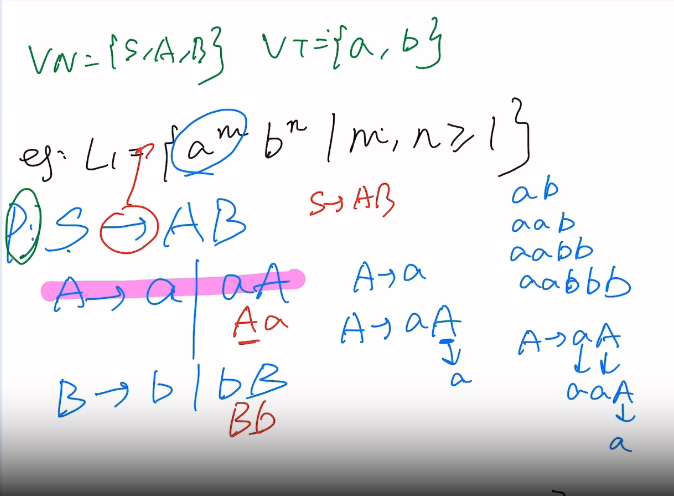 VN={S,A,B} VT={a,b}
eg: L1={a^m b^n | m,n≥1}
P: S→AB
S→AB
A→a|aA
Aa
B→b|bB
Bb
A→a
A→aA
a
ab
aab
aabb
aabbb
A→aA
aaA
a